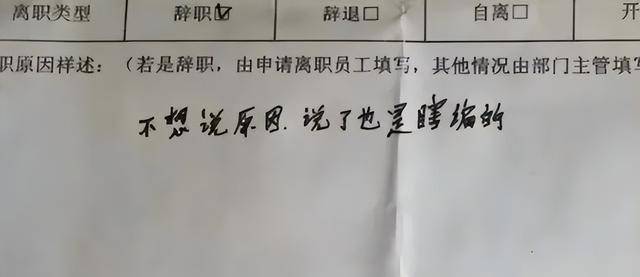 离职类型 辞职☑ 辞退□ 自离□ 开
职原因样述：（若是辞职，由申请离职员工填写，其他情况由部门主管填写
不想说原因.说了也是瞎编的